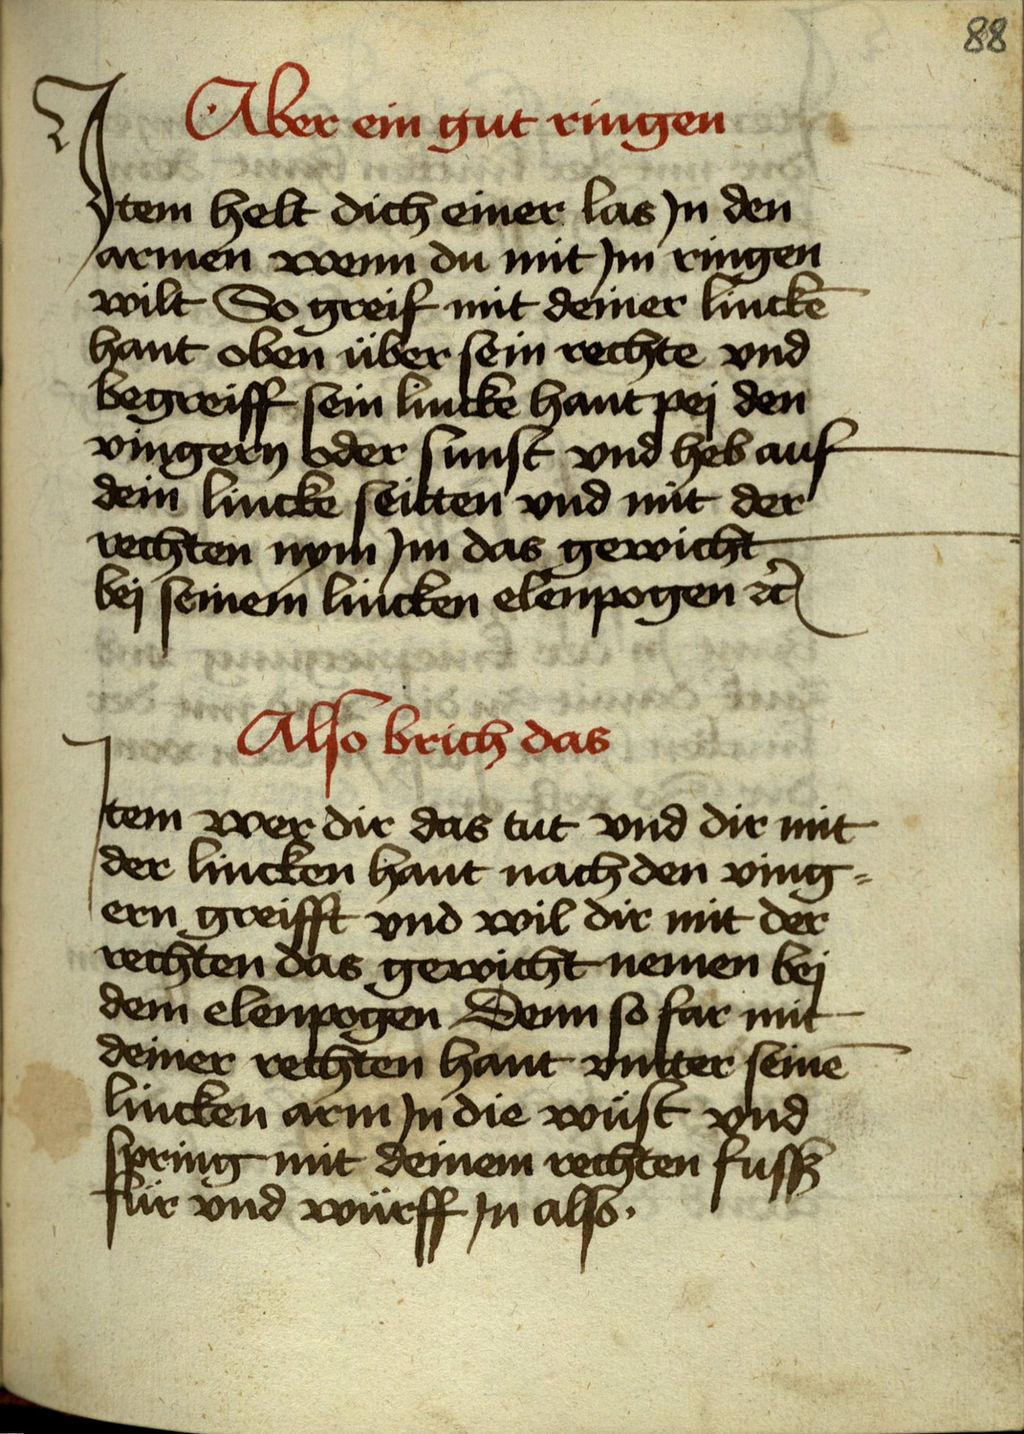 88
Aber ein gut ringen
Jtem helt dich einer las Jn den
armen wenn du mit Jm ringen
wilt So greif mit deiner linckē
hant oben über sein rechte vnd
begreiff sein lincke hant pej den
vingern oder sunst vnd heb auf
dein lincke seitten vnd mit der
rechten nym Jm das gewicht
bej seinem lincken elenpogen ⁊c̃
Also brich das
Jtem wer dir das tut vnd dir mit
der lincken hant nach den ving⸗
ern greifft vnd wil dir mit der
rechten das gewicht nemen bej
dem elenpogen Denn so far mit
deiner rechten hant vntter seinē
lincken arm Jn die wüst vnd
spring mit deinem rechten fussz
für vnd würff Jn also.